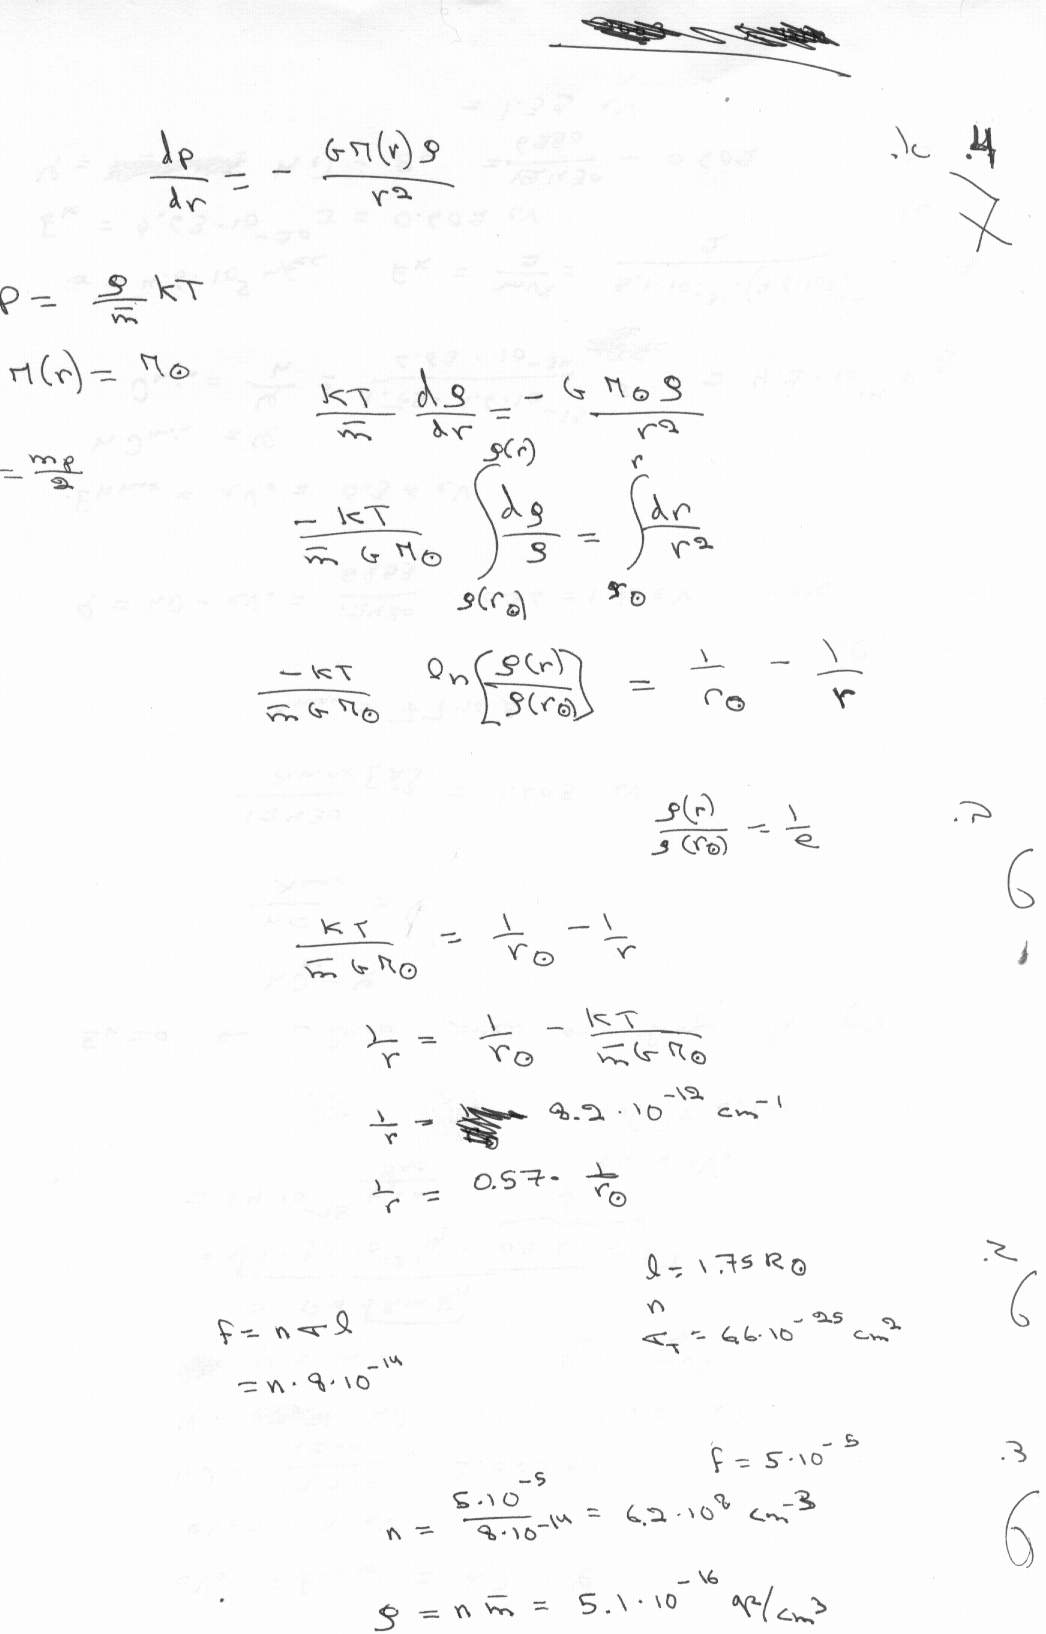 4. א.
7
dP/dr = - GM(r)ρ/r²
P = ρ/m̄ kT
M(r) = M⊙
= mₚ/2
kT/m̄ dρ/dr = - GM⊙ρ/r²
-kT/(m̄ G M⊙) ∫_{ρ(r⊙)}^{ρ(r)} dρ/ρ = ∫_{r⊙}^{r} dr/r²
-kT/(m̄ G M⊙) ln[ρ(r)/ρ(r⊙)] = 1/r⊙ - 1/r
ב. ρ(r)/ρ(r⊙) = 1/e
6
kT/(m̄ G M⊙) = 1/r⊙ - 1/r
1/r = 1/r⊙ - kT/(m̄ G M⊙)
1/r = 8.2·10⁻¹² cm⁻¹
1/r = 0.57· 1/r⊙
ג. l = 1.75 R⊙
6
n
σ_T = 6.6·10⁻²⁵ cm²
f = n σ l
= n·8·10⁻¹⁴
3. f = 5·10⁻⁵
n = 5·10⁻⁵/8·10⁻¹⁴ = 6.2·10⁸ cm⁻³
6
ρ = n m̄ = 5.1·10⁻¹⁶ gr/cm³